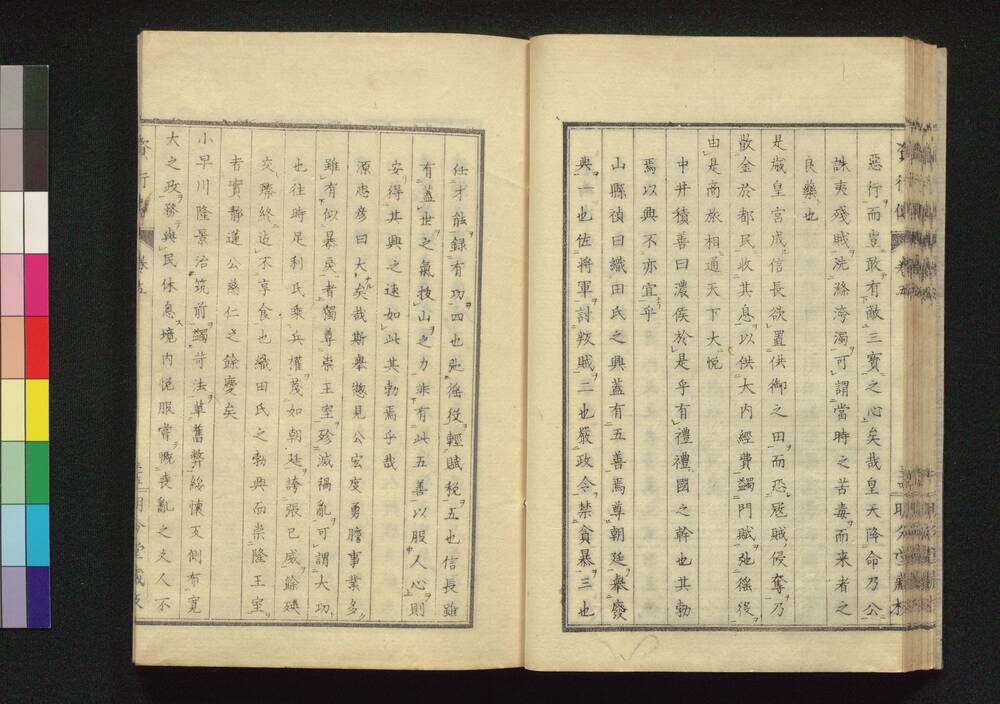 惡行而豈敢有敵三寳之心矣哉皇天降命乃公
誅夷殘賊洗滌洿濁可謂當時之苦毒而来者之
良藥也
是歳皇宮成信長欲置供御之田而恐冦賊侵奪乃
散金於都民收其息以供大内經費蠲門賦弛徭役
由是商旅相通天下大悦
中井積善曰濃侯於是乎有禮禮國之幹也其勃
焉以興不亦宜乎
山縣禎曰織田氏之興蓋有五善焉尊朝廷舉廢
典一也佐将軍討叛賊二也嚴政令禁貪暴三也
任才能錄有功四也弛徭役輕賦税五也信長雖
有蓋世之氣抜山之力非有此五善以服人心則
安得其興之速如此其勃焉乎哉
源忠彦曰大矣哉斯舉㦤見公宏度勇膽事業多
雖有似暴戻者獨尊崇王室殄滅禍亂可謂大功
也往時足利氏乘兵權蔑如朝廷誇張已威餘殃
交臻終迄不享食也織田氏之勃興而崇隆王室
者實靜蓮公慈仁之餘慶矣
小早川隆景治筑前蠲苛法革舊弊綏懐反側布寛
大之政務與民休息境内悦服嘗慨喪亂之久人不